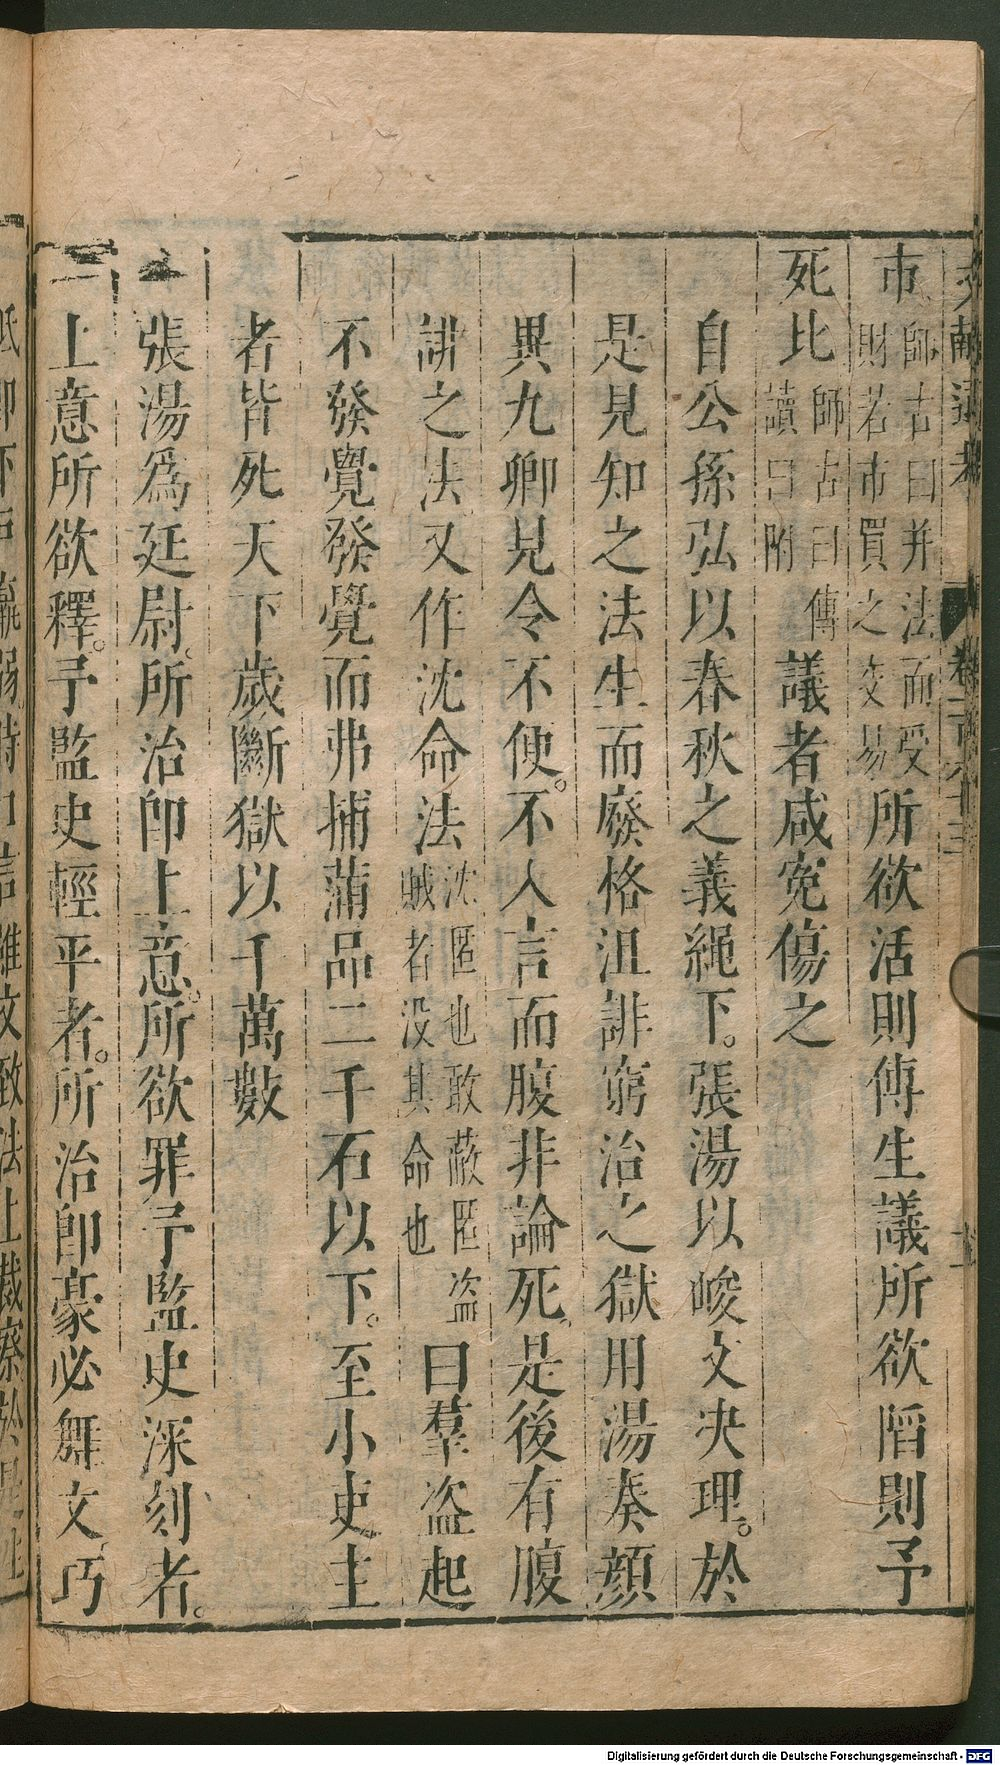 市師古曰并法而受財若市買之交易所欲活則傅生議所欲陷則予
死比師古曰傳讀曰附議者咸冤傷之
自公孫弘以春秋之義繩下。張湯以峻文決理。於
是見知之法生而廢格沮誹窮治之獄用湯奏顔
異九卿見令不便。不入言而腹非論死。是後有腹
誹之法又作沈命法沈匿也敢蔽匿盗賊者没其命也曰羣盗起
不發覺發覺而弗捕蒲品二千石以下。至小吏主
者皆死天下歲斷獄以千萬數
張湯爲廷尉。所治卽上意。所欲罪予監史深刻者。
上意所欲釋。予監史輕平者。所治卽豪必舞文巧
卷一百六十三
Digitalisierung gefördert durch die Deutsche Forschungsgemeinschaft - DFG